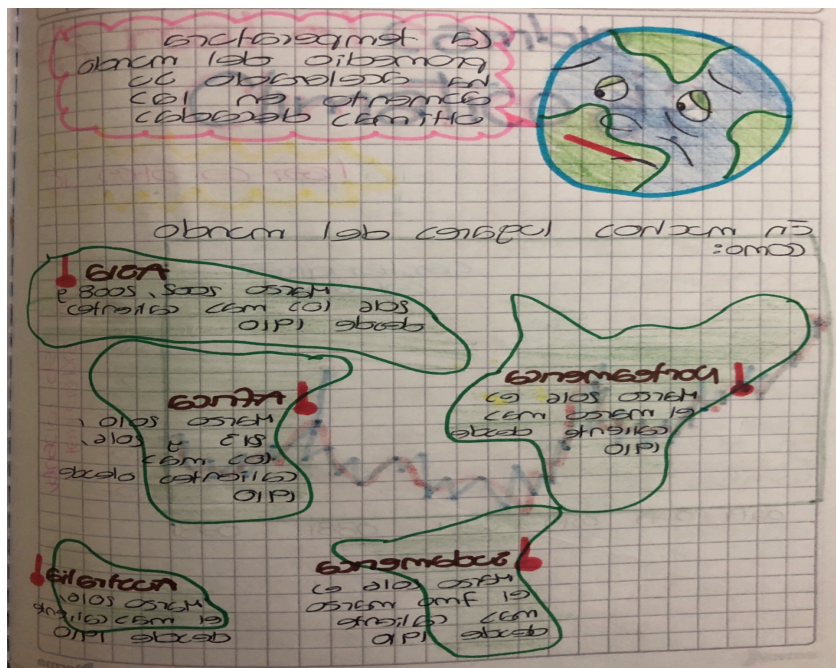 La temperatura
promedio del mundo
ha acelerado su
aumento en las
ultimas decadas
En muchos lugares del mundo
como:
Asia
Marzo 2002, 2008 y
2016 los mas calientes
desde 1910
Norteamerica
Marzo 2016 es
el marzo mas
caliente desde
1910
Africa
Marzo 2010,
y 2016,
los mas
calientes desde
1910
Sudamerica
Marzo 2016 es
el marzo
mas caliente
desde 1910
Australia
Marzo 2016,
el mas caliente
desde 1910